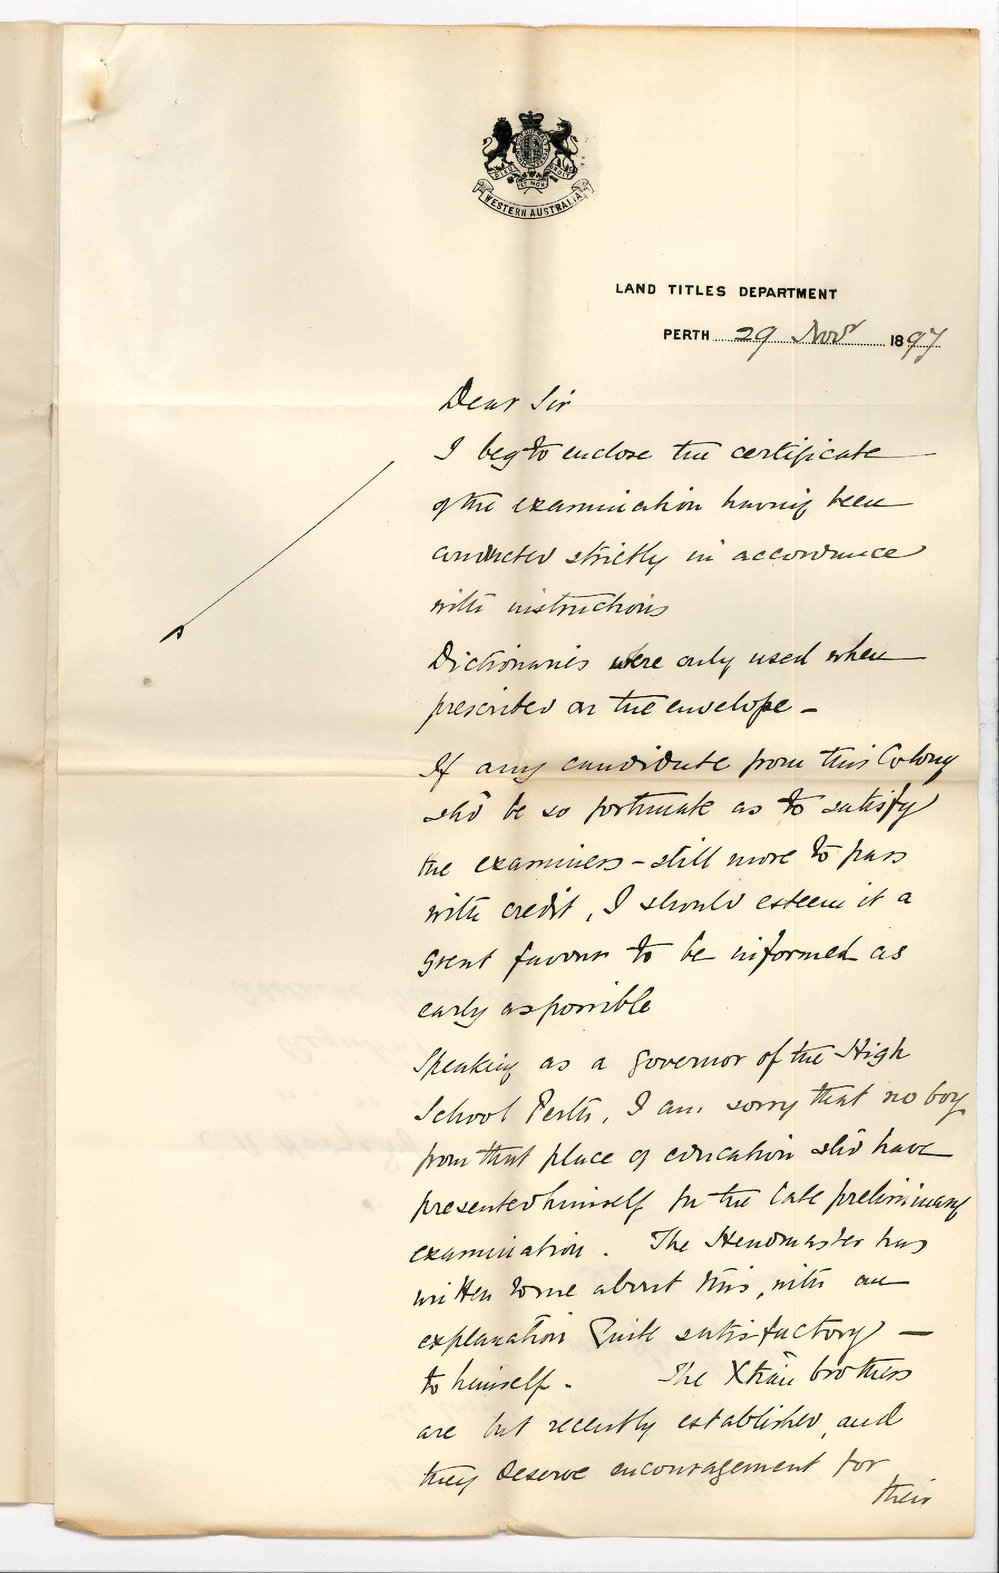 WESTERN AUSTRALIA
LAND TITLES DEPARTMENT
PERTH 29 Novr 1897
Dear Sir
I beg to enclose the certificate
of the examination having been
conducted strictly in accordance
with instructions
Dictionaries were only used when
prescribed on the envelope –
If any candidate from this Colony
shd be so fortunate as to satisfy
the examiners – still more to pass
with credit, I should esteem it a
great favour to be informed as
early as possible
Speaking as a governor of the High
School Perth, I am sorry that no boy
from that place of education shd have
presented himself for the late preliminary
examination. The Headmaster has
written to me about this, with an
explanation quite satisfactory –
to himself. The Xtian brothers
are but recently established, and
they deserve encouragement for
their